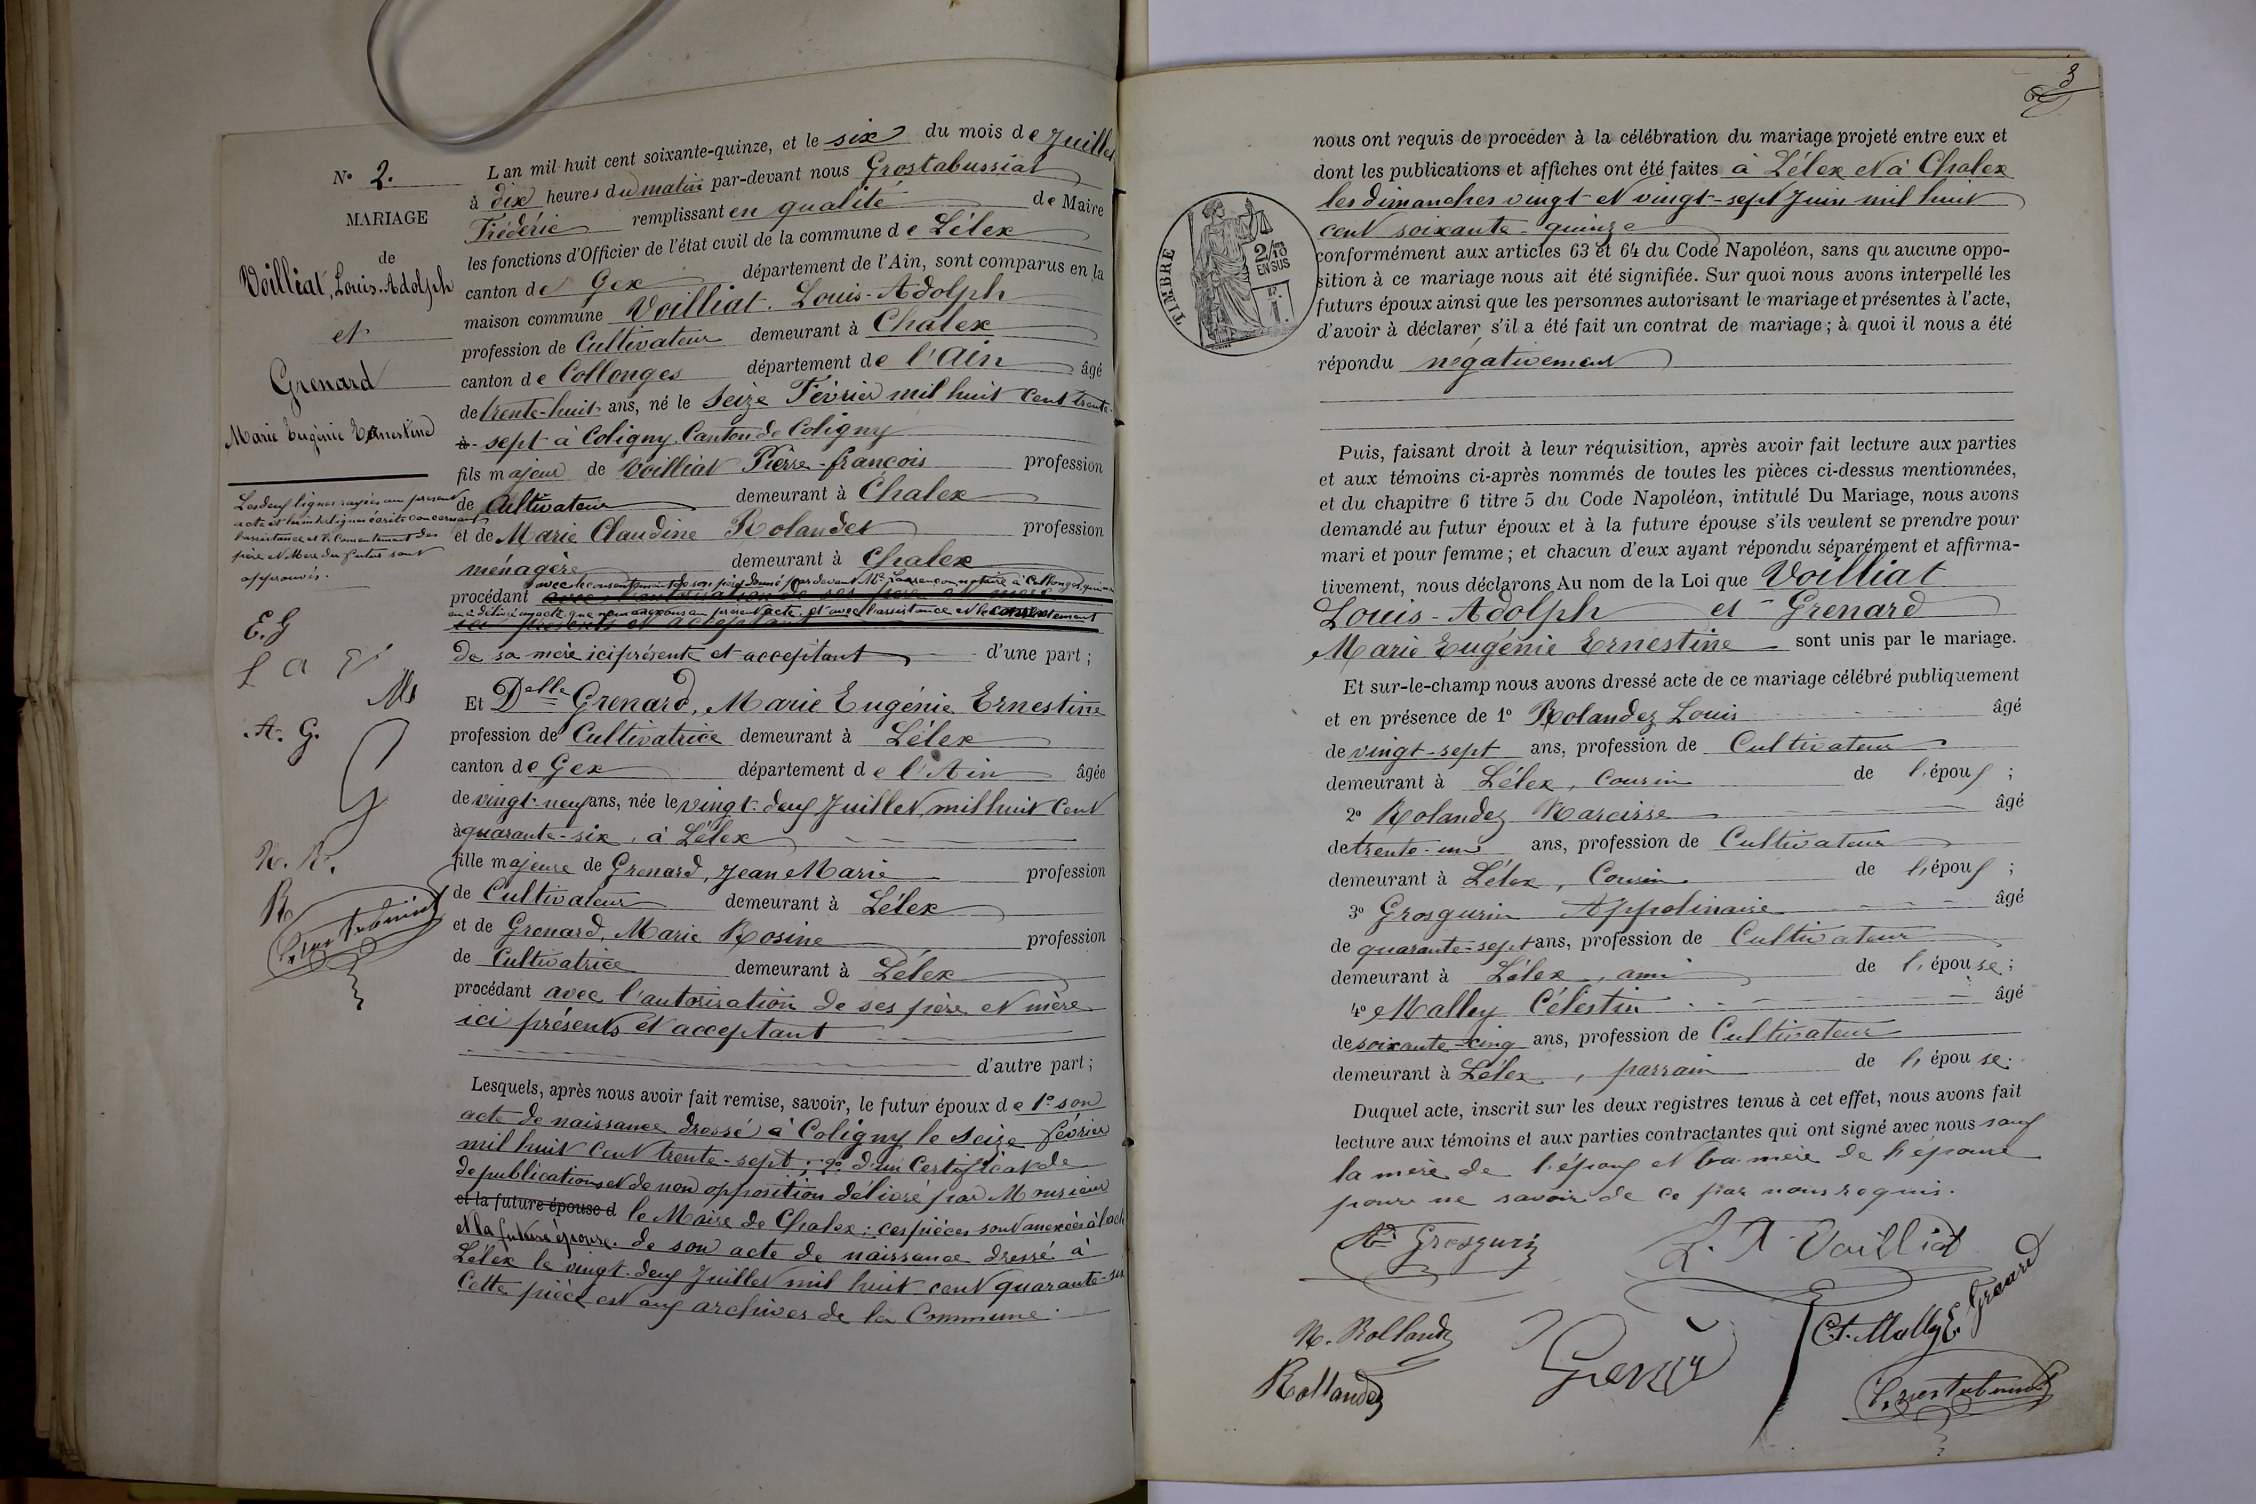 N° 2.
MARIAGE
de
Voilliat, Louis-Adolph
et
Grenard
Marie Eugénie Ernestine
Les deux lignes rayées au present
acte et les interlignes écrits concernant
l'assistance et le Consentement des
père et Mère du futur sont
approuvés.
E. G
L a V
Ms
A. G.
N. R.
R
L an mil huit cent soixante-quinze, et le six du mois de Juillet
à dix heures du matin par-devant nous Grostabussiat
Frédéric remplissant en qualité de Maire
les fonctions d'Officier de l'état civil de la commune de Lélex
canton de Gex département de l'Ain, sont comparus en la
maison commune Voilliat. Louis-Adolph
profession de Cultivateur demeurant à Chalex
canton de Collonges département de l'Ain âgé
de trente-huit ans, né le Seize Février mil huit cent trente-
à sept à Coligny, Canton de Coligny
fils majeur de Voilliat Pierre-françois profession
de Cultivateur demeurant à Chalex
et de Marie Claudine Rolandez profession
ménagère demeurant à Chalex
avec le consentement de son père donné par devant Me notaire à Collonges, qui en
procédant avec l'autorisation de ses père et mère
a délivré un acte que nous annexons au présent acte, et avec l'assistance et le consentement
ici présents et acceptant
de sa mère ici présente et acceptant d'une part ;
Et Delle Grenard, Marie Eugénie Ernestine
profession de Cultivatrice demeurant à Lélex
canton de Gex département de l'Ain âgée
de vingt-neuf ans, née le vingt-deux Juillet, mil huit cent
à quarante-six, à Lélex
fille majeure de Grenard, Jean Marie profession
de Cultivateur demeurant à Lélex
et de Grenard, Marie Rosine profession
de Cultivatrice demeurant à Lélex
procédant avec l'autorisation de ses père et mère
ici présents et acceptant
d'autre part ;
Lesquels, après nous avoir fait remise, savoir, le futur époux de 1° son
acte de naissance dressé à Coligny le Seize février
mil huit cent trente-sept ; 2° d'un Certificat de
de publications et de non opposition délivré par Monsieur
et la future épouse d le Maire de Chalex : ces pièces sont annexées à l'acte
et la future épouse. de son acte de naissance dressé à
Lélex le vingt-deux Juillet mil huit cent quarante-six
Cette pièce est aux archives de la Commune.
3
TIMBRE
2/10 EN SUS
nous ont requis de procéder à la célébration du mariage projeté entre eux et
dont les publications et affiches ont été faites à Lélex et à Chalex
les dimanches vingt et vingt-sept Juin mil huit
cent soixante-quinze
conformément aux articles 63 et 64 du Code Napoléon, sans qu aucune oppo-
sition à ce mariage nous ait été signifiée. Sur quoi nous avons interpellé les
futurs époux ainsi que les personnes autorisant le mariage et présentes à l'acte,
d'avoir à déclarer s'il a été fait un contrat de mariage ; à quoi il nous a été
répondu négativement
Puis, faisant droit à leur réquisition, après avoir fait lecture aux parties
et aux témoins ci-après nommés de toutes les pièces ci-dessus mentionnées,
et du chapitre 6 titre 5 du Code Napoléon, intitulé Du Mariage, nous avons
demandé au futur époux et à la future épouse s'ils veulent se prendre pour
mari et pour femme ; et chacun d'eux ayant répondu séparément et affirma-
tivement, nous déclarons Au nom de la Loi que Voilliat
Louis-Adolph et Grenard
Marie Eugénie Ernestine sont unis par le mariage.
Et sur-le-champ nous avons dressé acte de ce mariage célébré publiquement
et en présence de 1° Rolandez Louis âgé
de vingt-sept ans, profession de Cultivateur
demeurant à Lélex, Cousin de l'époux ;
2° Rolandez Narcisse âgé
de trente-un ans, profession de Cultivateur
demeurant à Lélex, Cousin de l'époux ;
3° Grosgurin Appolinaire âgé
de quarante-sept ans, profession de Cultivateur
demeurant à Lélex, ami de l'épouse ;
4° Malley Célestin âgé
de soixante-cinq ans, profession de Cultivateur
demeurant à Lélex, parrain de l'épouse.
Duquel acte, inscrit sur les deux registres tenus à cet effet, nous avons fait
lecture aux témoins et aux parties contractantes qui ont signé avec nous sauf
la mère de l'époux et la mère de l'épouse
pour ne savoir de ce par nous requis.
An Grosgurin L. A. Voilliat
E. Grenard
N. Rollandez Ct. Mally
Rollandez Grostabussiat